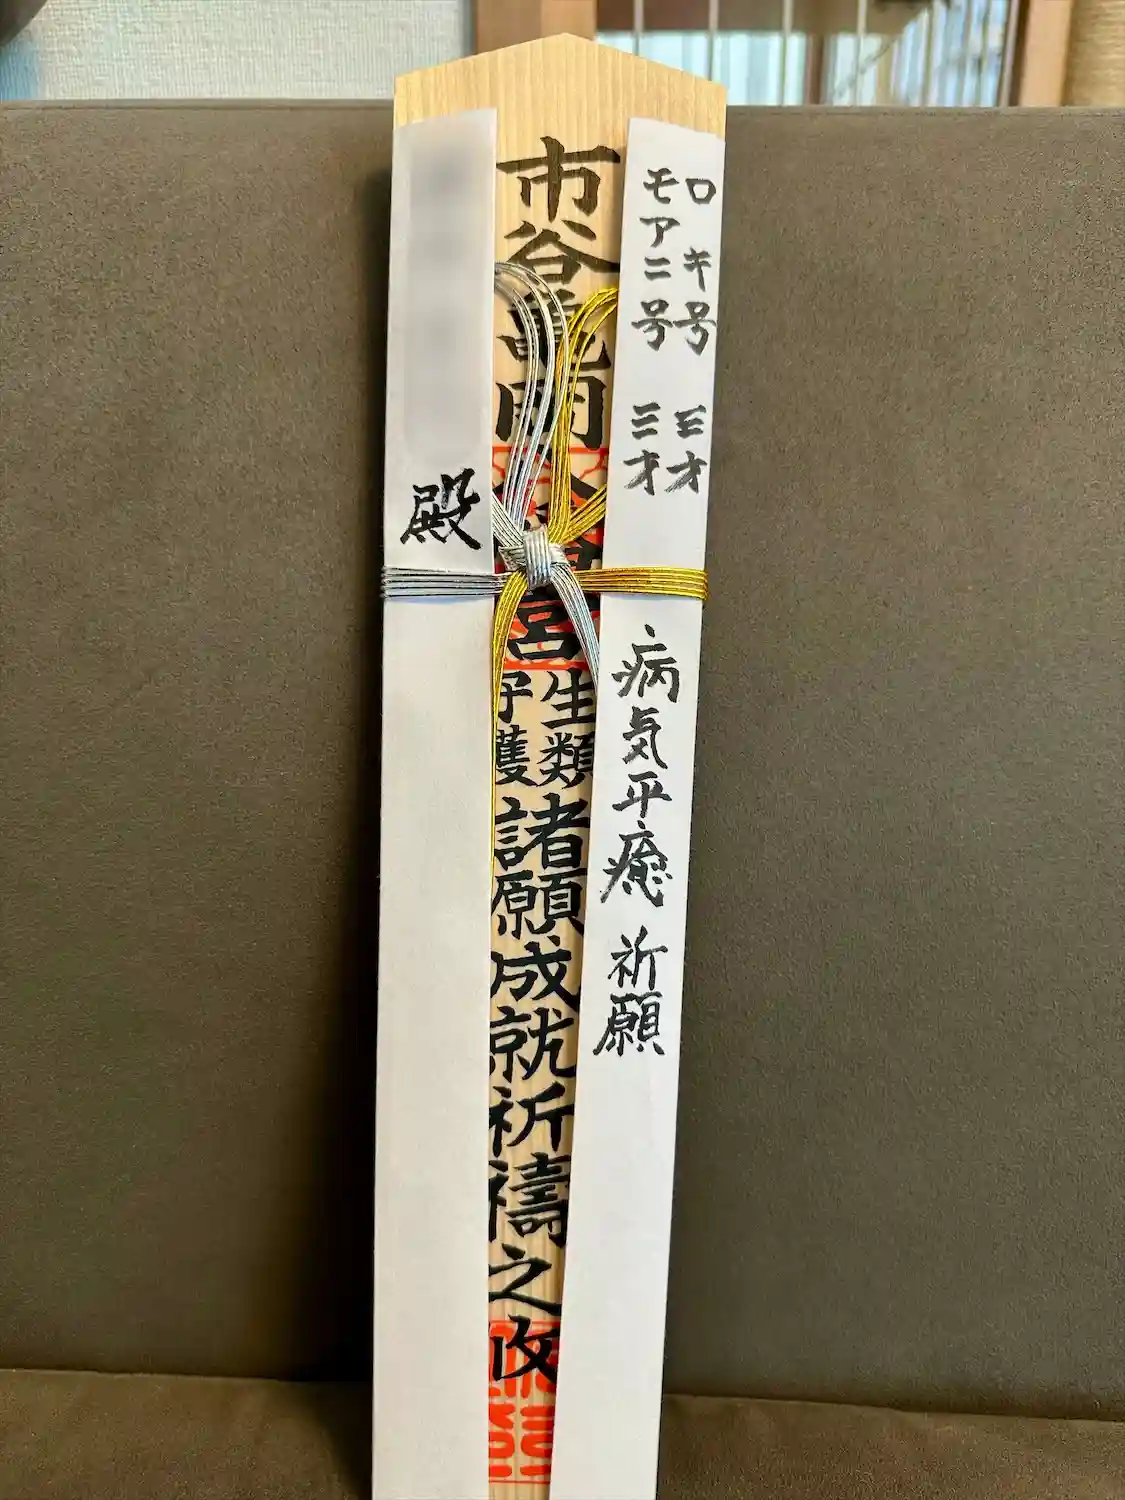 ロキ号 才
モアニ号 三才
病気平癒 祈願
市谷亀岡八幡宮
生類
守護
諸願成就祈禱之攸
殿